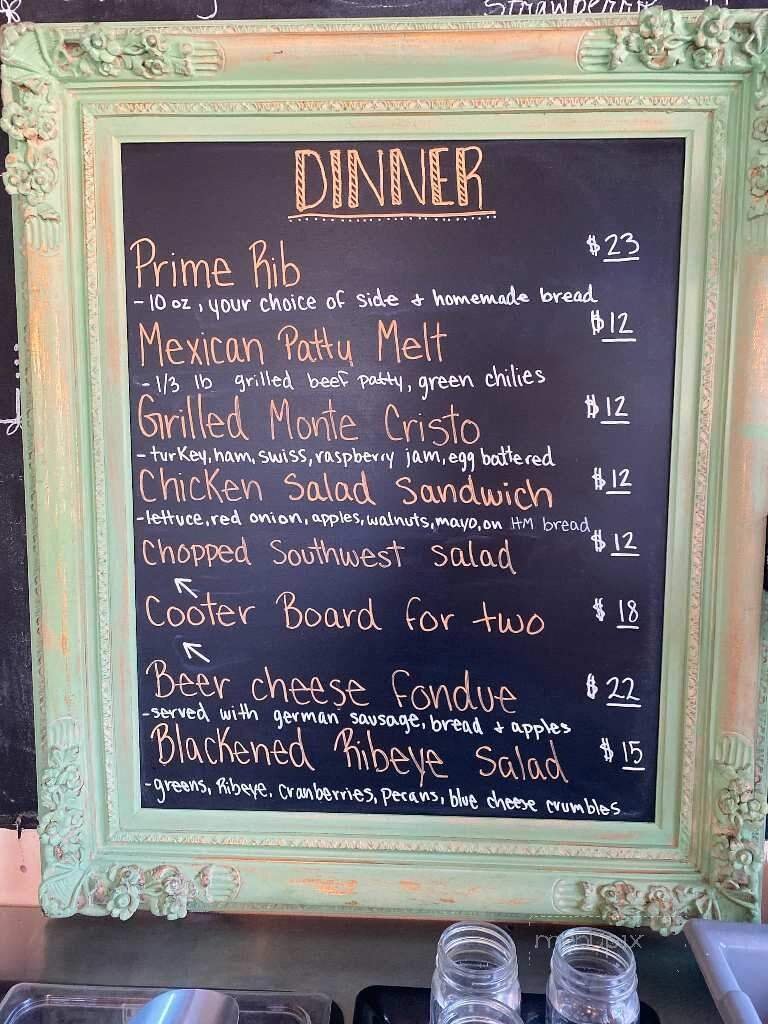 Strawberry
DINNER
Prime Rib $23
- 10 oz, your choice of side + homemade bread
Mexican Patty Melt $12
- 1/3 lb grilled beef patty, green chilies
Grilled Monte Cristo $12
- turkey, ham, swiss, raspberry jam, egg battered
Chicken Salad Sandwich $12
- lettuce, red onion, apples, walnuts, mayo, on HM bread
Chopped Southwest Salad $12
Cooter Board for two $18
Beer cheese fondue $22
- served with german sausage, bread + apples
Blackened Ribeye Salad $15
- greens, Ribeye, cranberries, pecans, blue cheese crumbles
menupix